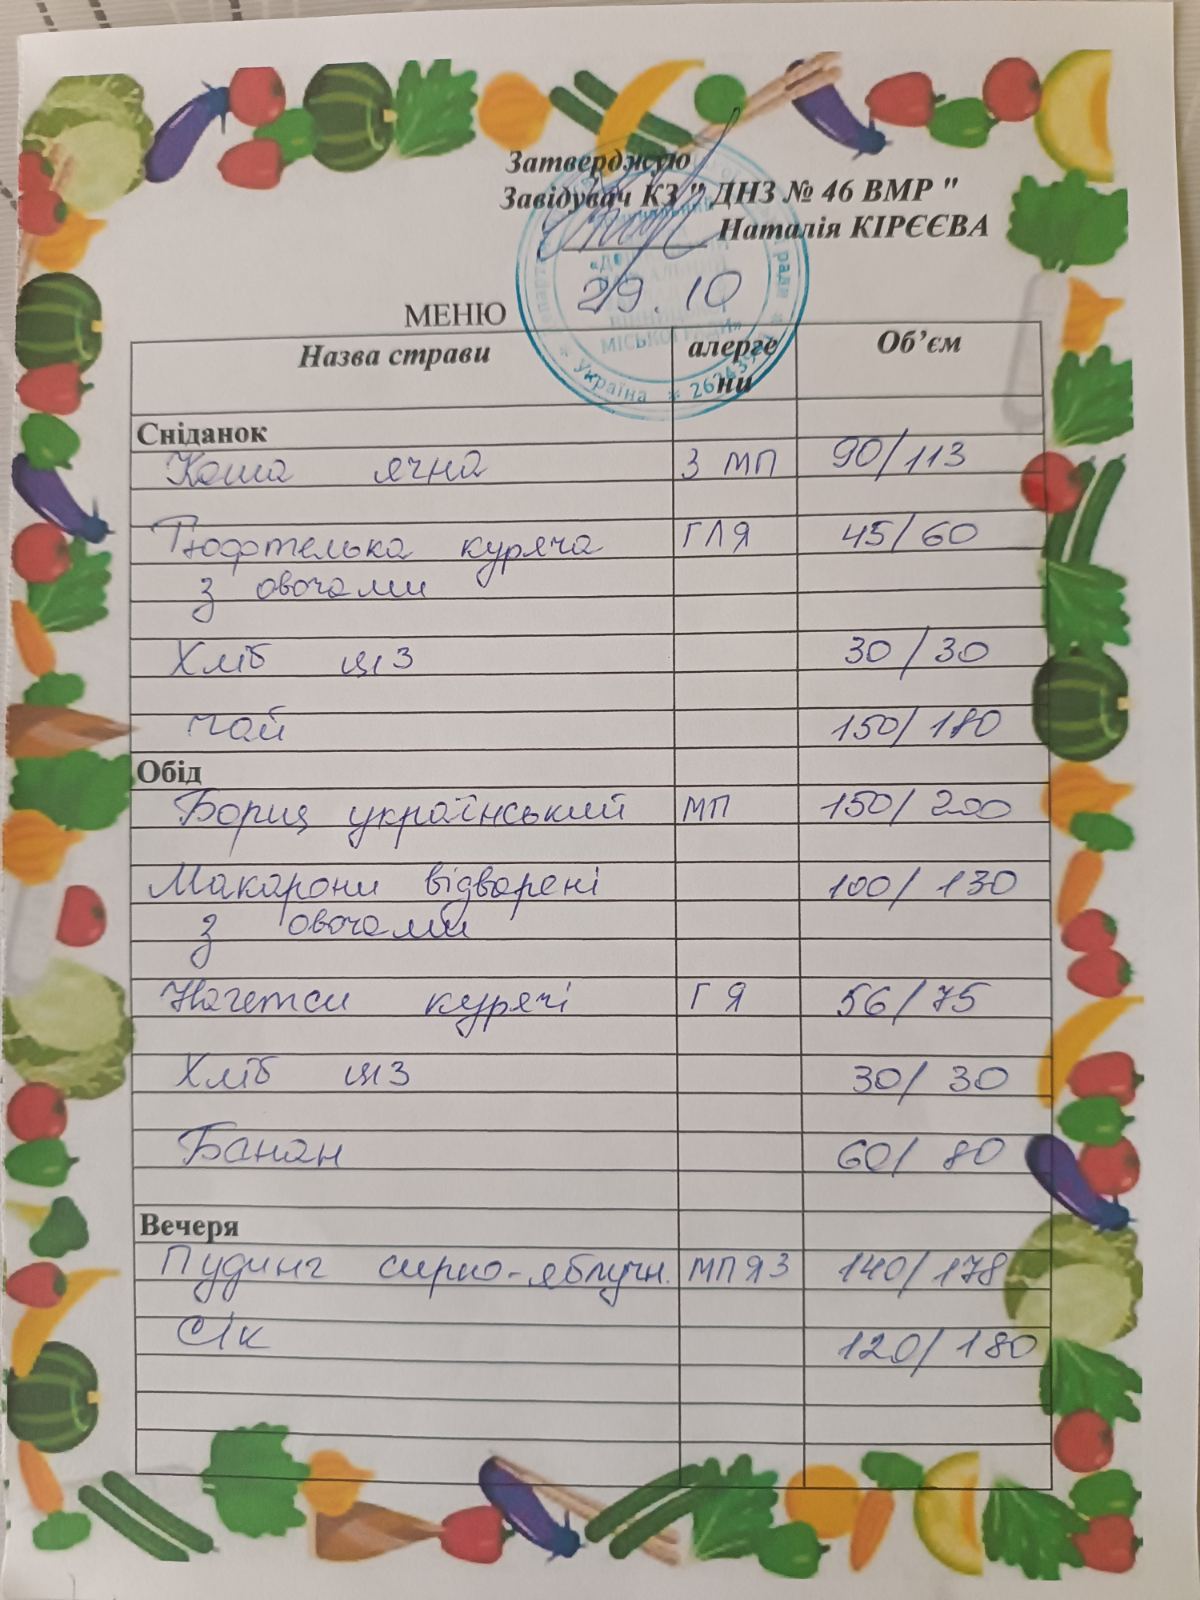 Затверджую
Завідувач КЗ " ДНЗ № 46 ВМР "
Наталія КІРЄЄВА
29.10
МЕНЮ
Назва страви алерге Об’єм
ни
Сніданок
Каша ячна З МП 90/113
Тюфтелька куряча ГЛЯ 45/60
з овочами
Хліб ц/з 30/30
Чай 150/180
Обід
Борщ український МП 150/200
Макарони відварені 100/130
з овочами
Нагетси курячі Г Я 56/75
Хліб ц/з 30/30
Банан 60/80
Вечеря
Пудинг сирно-яблучн. МПЯЗ 140/178
Сік 120/180
МІСЬКОЇ РАДИ»
* Україна *